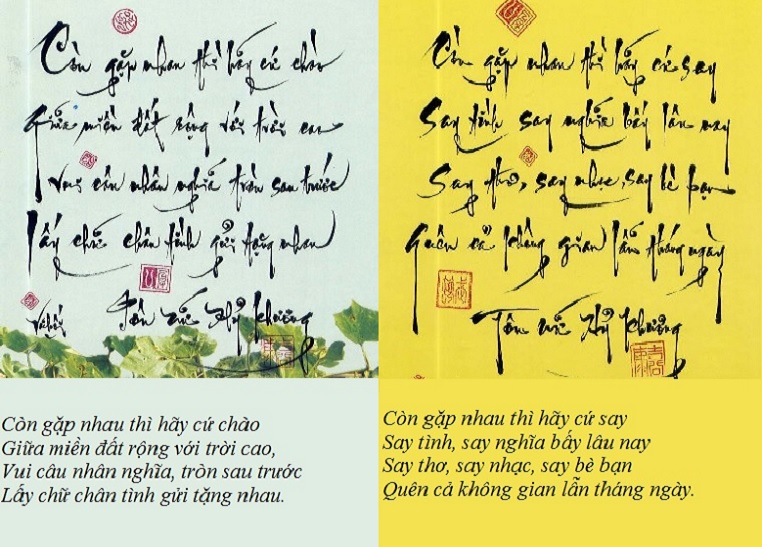 Còn gặp nhau thì hãy cứ chào
Giữa miền đất rộng với trời cao
Vui câu nhân nghĩa tròn sau trước
Lấy chữ chân tình gửi tặng nhau
Tôn Nữ Hỷ Khương
Còn gặp nhau thì hãy cứ chào
Giữa miền đất rộng với trời cao,
Vui câu nhân nghĩa, tròn sau trước
Lấy chữ chân tình gửi tặng nhau.
Còn gặp nhau thì hãy cứ say
Say tình say nghĩa bấy lâu nay
Say thơ, say nhạc, say bè bạn
Quên cả không gian lẫn tháng ngày
Tôn Nữ Hỷ Khương
Còn gặp nhau thì hãy cứ say
Say tình, say nghĩa bấy lâu nay
Say thơ, say nhạc, say bè bạn
Quên cả không gian lẫn tháng ngày.